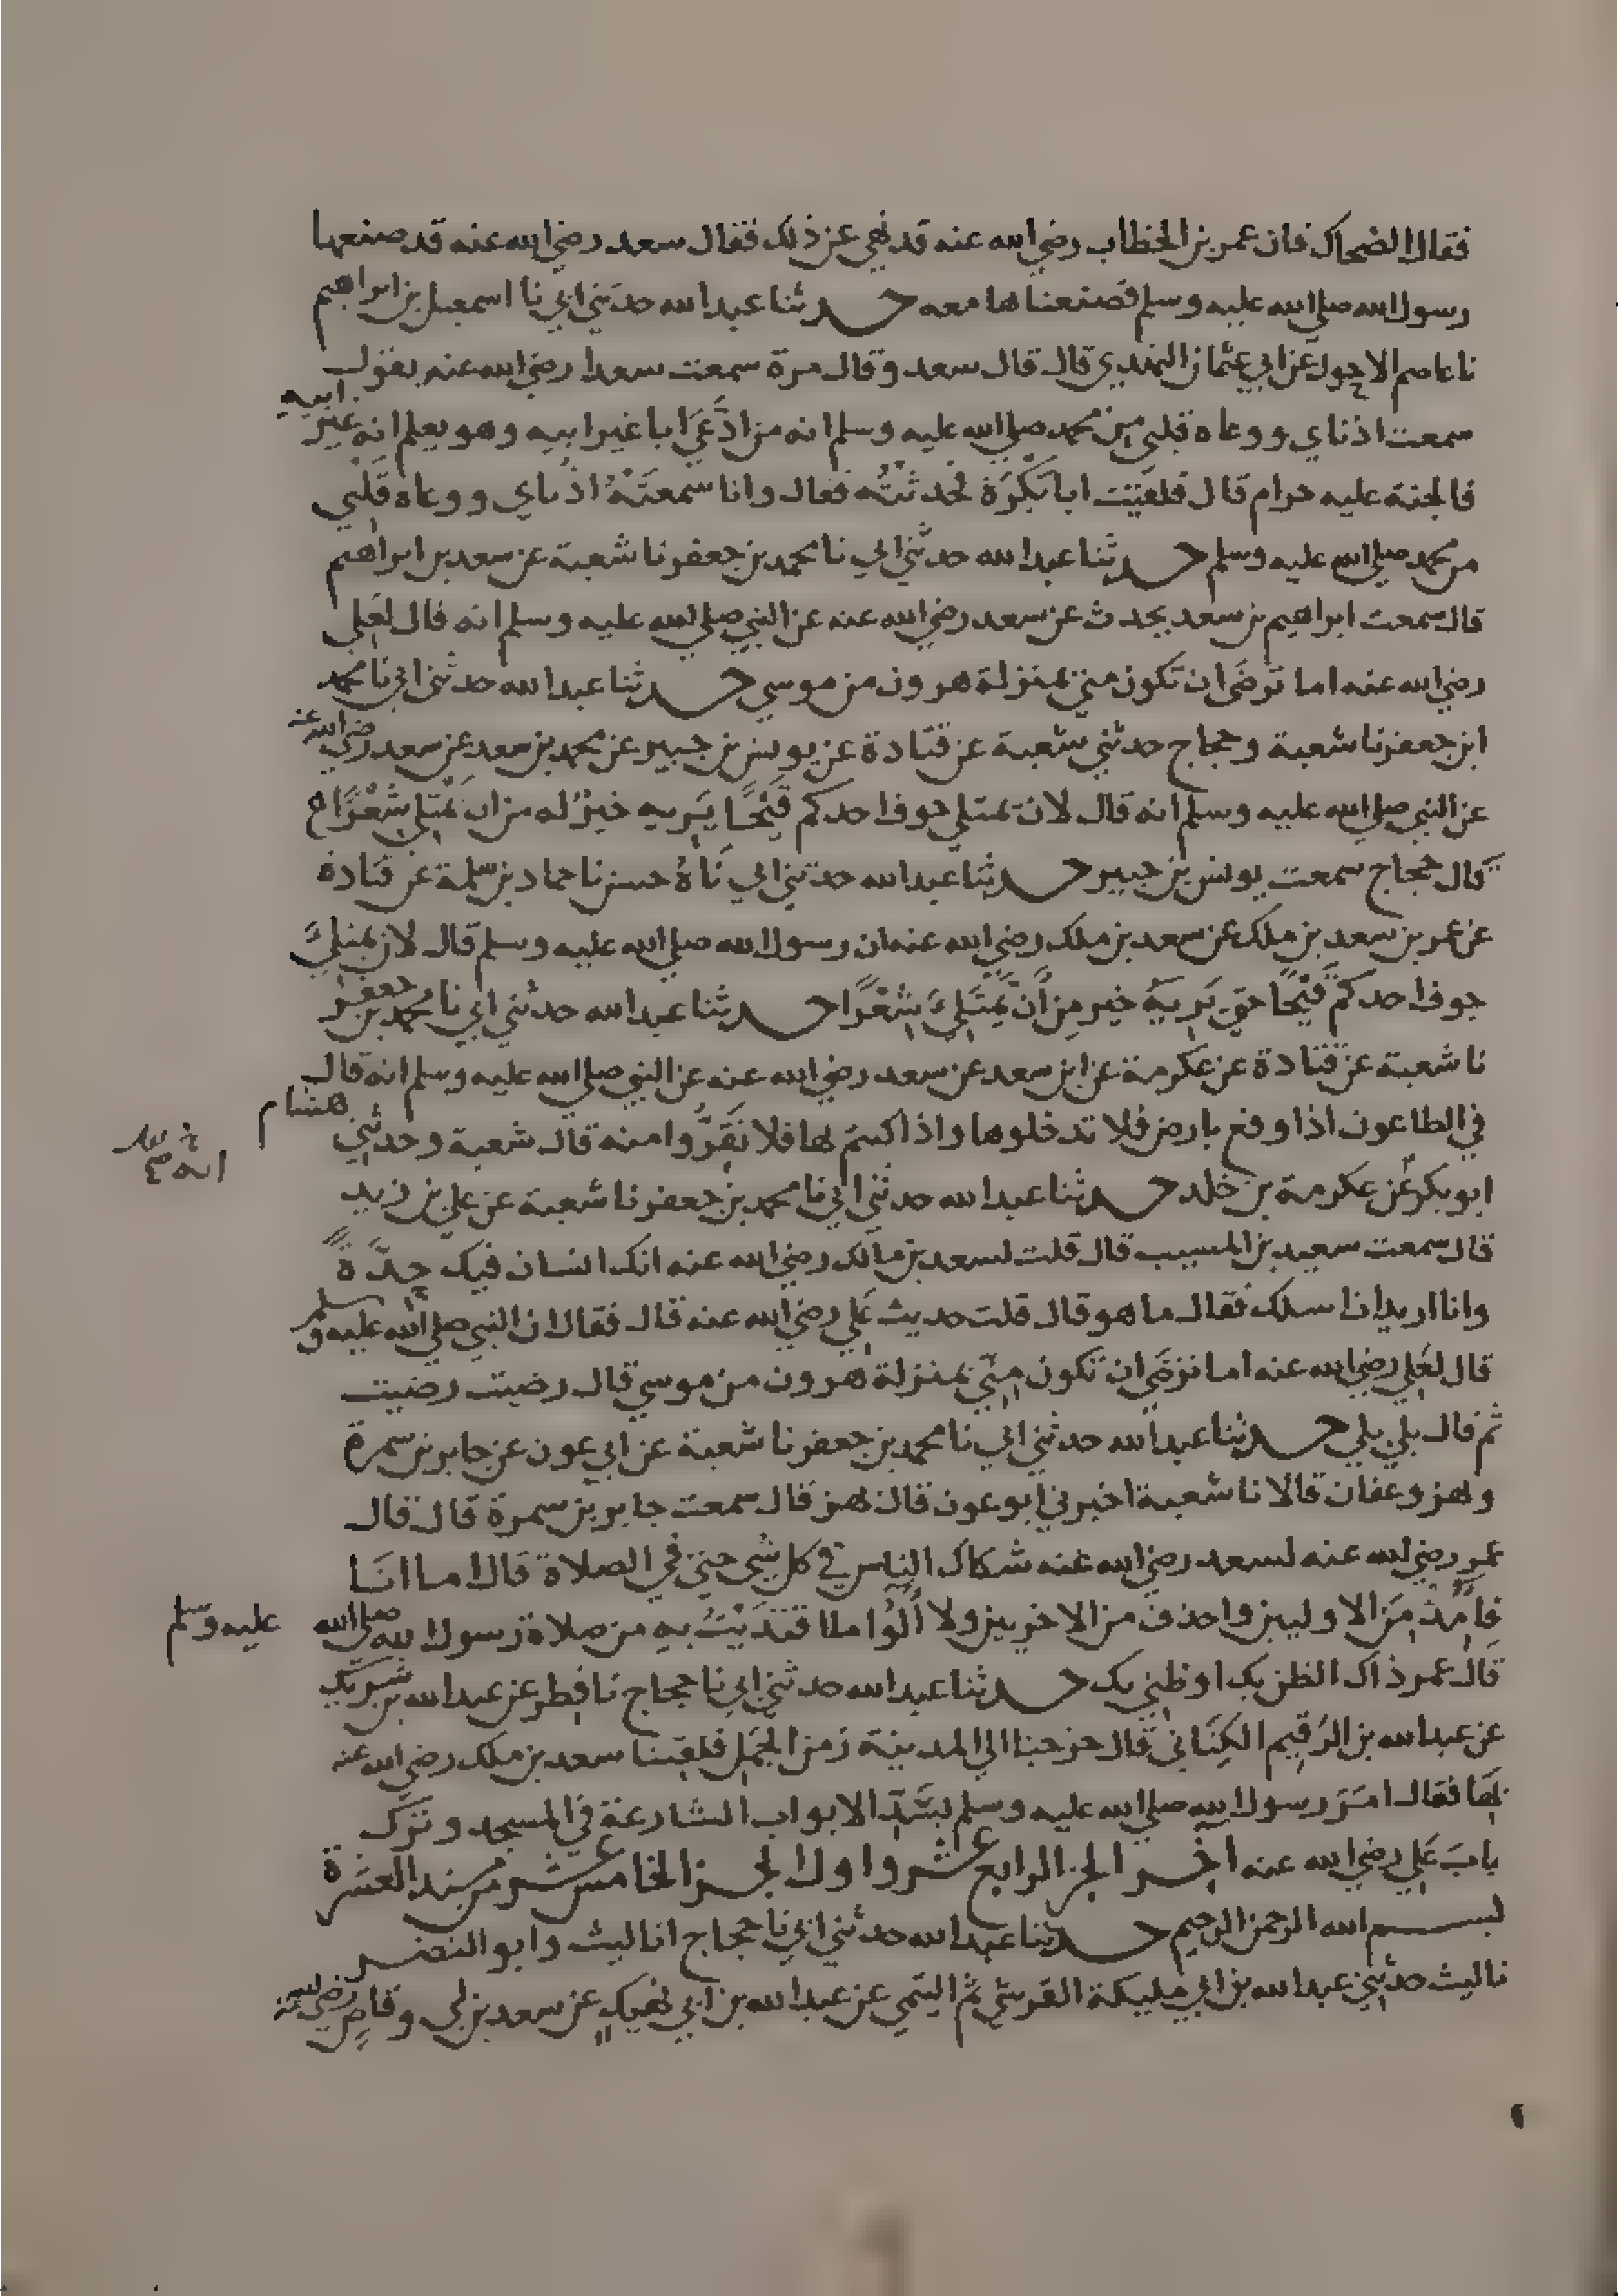 فقال الضحاك فان عمر بن الخطاب رضي الله عنه قد نهي عن ذلك فقال سعد رضي الله عنه قد صنعها
رسول الله صلى الله عليه وسلم فصنعناها معه حدثنا عبد الله حدثني ابي نا اسمعيل بن ابراهيم
نا عاصم الاحول عن ابي عثمان النهدي قال قال سعد وقال مرة سمعت سعدا رضي الله عنه يقول
سمعت اذناي ووعاه قلبي من محمد صلى الله عليه وسلم انه من ادَّعَى ابا غير ابيه وهو يعلم انه غير ابيه
فالجنة عليه حرام قال فلقيت ابا بَكْرَة فحدثتُه فقال وانا سَمعَتْهُ اذناي ووعاه قَلْبي
من محمد صلى الله عليه وسلم حدثنا عبد الله حدثني ابي نا محمد بن جعفر نا شعبة عن سعد بن ابراهيم
قال سمعت ابراهيم بن سعد يحدث عن سعد رضي الله عنه عن النبي صلى الله عليه وسلم انه قال لعلي
رضي الله عنه اما ترضَى ان تكون مني بمنزلة هرون من موسي حدثنا عبد الله حدثني ابي نا محمد
ابن جعفر نا شعبة وحجاج حدثني شعبة عن قتادة عن يونس بن جبير عن محمد بن سعد عن سعد رضي الله عنه
عن النبي صلى الله عليه وسلم انه قال لان يمتلي جوف احدكم قَيْحًا يَريه خيرٌ له من ان يمْتَلي شِعْرًا
قال حجاج سمعت يونس بن جبير حدثنا عبد الله حدثني ابي نَاهُ حسن نا حماد بن سلمة عن قتادة
عن عمر بن سعد بن ملك عن سعد بن ملك رضي الله عنه ان رسول الله صلى الله عليه وسلم قال لان يمتليَ
جوف احدكم قَيْحًا حتى يَرِيَهُ خير مِن اَنْ يَمْتَلِئَ شِعْرًا حدثنا عبد الله حدثني ابي نا محمد بن جعفر
نا شعبة عن قتادة عن عكرمة عن ابن سعد عن سعد رضي الله عنه عن النبي صلى الله عليه وسلم انه قال
في الطاعون اذا وقع بارض فلا تدخلوها واذا كنتم بها فلا تَفِرُّوا منه قال شعبة وحدثني هشام
ابو بكر عن عكرمة بن خلد حدثنا عبد الله حدثني ابي نا محمد بن جعفر نا شعبة عن علي بن زيد
قال سمعت سعيد بن المسيب قال قلت لسعد بن مالك رضي الله عنه انك انسان فيك حِدَّةً
وانا اريد ان اسلك فقال ما هو قال قلت حديث عَلي رضي الله عنه قال فقال ان النبي صلى الله عليه وسلم
قال لعَلي رضي الله عنه اما ترضَى ان تكون مِنّي بمنزلة هرون من موسي قال رضيت رضيت
ثم قال بلي بلي حدثنا عبد الله حدثني ابي نا محمد بن جعفر نا شعبة عن ابي عون عن جابر بن سمرة
وبهز وعفان قالا نا شعبة اخبرني ابو عون قال بهز قال سمعت جابر بن سمرة قال قال
عمر رضي الله عنه لسعد رضي الله عنه شكاك الناس في كل شي حتى في الصلاة قال اما انَا
فاَمُدُّ مِنَ الاوليين واحذف من الاخريين ولا آلُوا ما اقتَدَيْتُ به من صلاة رسول الله صلى الله عليه وسلم
قال عمر ذاك الظن بك او ظني بك حدثنا عبد الله حدثني ابي نا حجاج نا فِطر عن عبد الله بن شريك
عن عبد الله بن الرُقَيم الكِنَاني قال خرجنا الي المدينة زمن الجَمَل فلقينا سعد بن ملك رضي الله عنه
بهَا فقال امَرَ رسول الله صلى الله عليه وسلم بسَدّ الابواب الشارعة في المسجد وترَك
بابَ عَلي رضي الله عنه اخر الجز الرابع عشر واول الجز الخامس عشر من مسند العشرة
بسم الله الرحمن الرحيم حدثنا عبد الله حدثني ابي نا حجاج انا ليث وابو النضر
نا ليث حدثني عبد الله بن ابي مليكة القرشي ثم التيمي عن عبد الله بن ابي نهيكٍ عن سعد بن ابي وقاصٍ رضي الله عنه